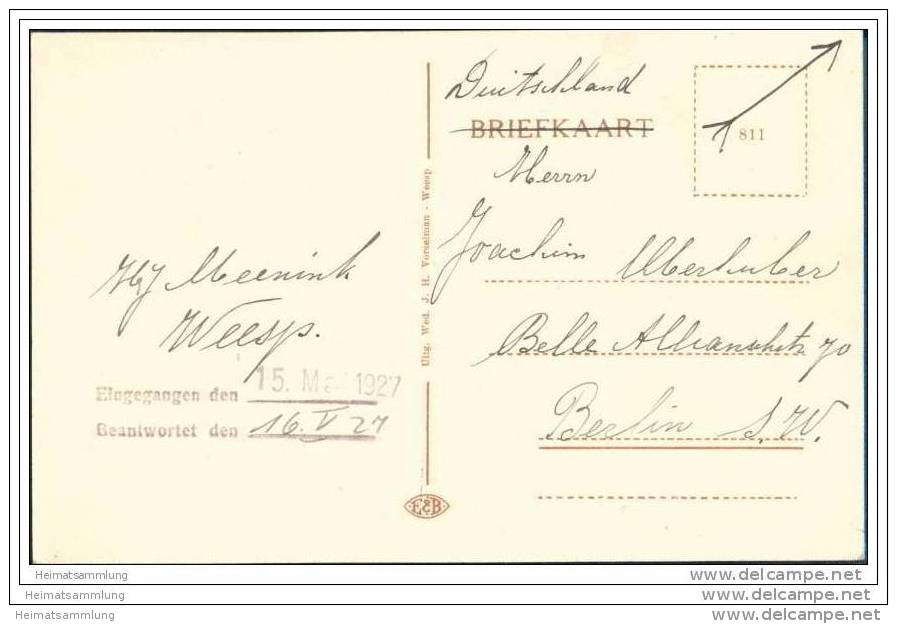 Deutschland
BRIEFKAART
811
Herrn
Joachim
Belle Alliancestr. 70
Berlin S.W.
Uitg. Wed. J. H. Vorselman - Weesp
HJ Meenink
Weesp.
Eingegangen den 15. Mai 1927
Beantwortet den 16. V 27
E&B
Heimatsammlung
www.delcampe.net
Heimatsammlung
www.delcampe.net
Heimatsammlung
www.delcampe.net